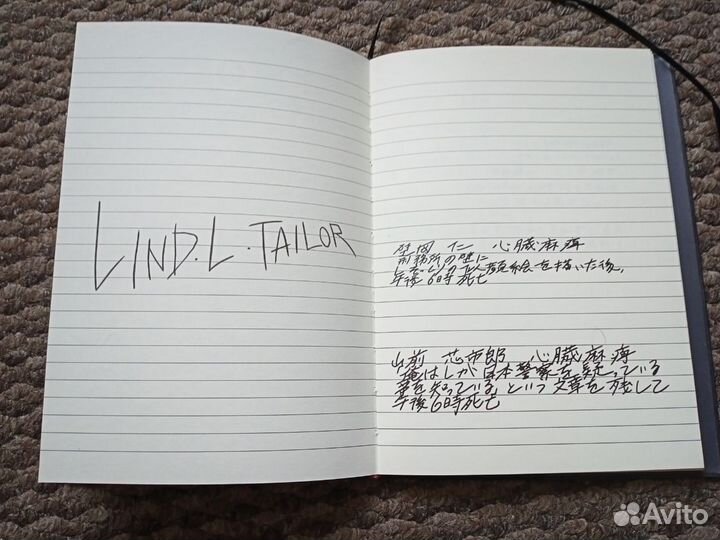 LIND.L.TAILOR
壁岡 仁 心臓麻痺
刑務所の壁に
似顔絵を描いた後、
午後6時死亡
山前 芯市郎 心臓麻痺
俺はLが日本警察を疑っている
事を知っている。という文章を残して
午後6時死亡
Avito